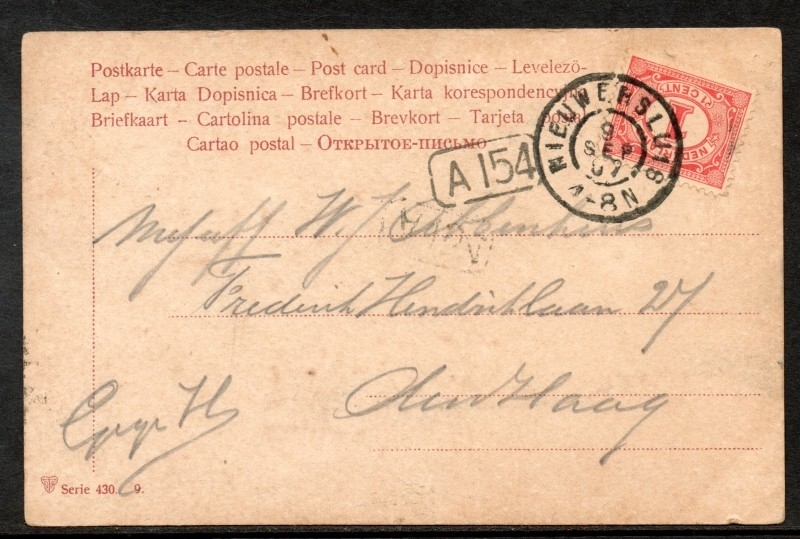 Postkarte – Carte postale – Post card – Dopisnice – Levelezö-
Lap – Karta Dopisnica – Brefkort – Karta korespondency
Briefkaart – Cartolina postale – Brevkort – Tarjeta postal
Cartao postal – Открытое-письмо
NIEUWERSLUIS
9
SEP
07
4-8N
1
CENT
NED
A 154
W.
Frederik Hendriklaan 27
Den Haag
Serie 430. 9.